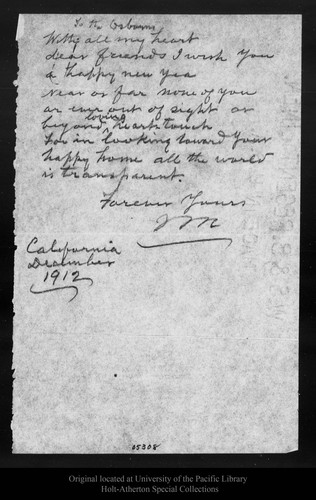 To the Osborns
With all my heart
dear friends I wish you
a happy new yea
Near or far none of you
ar ever out of sight or
beyond loving heart touch
for in looking toward your
happy home all the world
is transparent.
Forever Yours
JM
California
December
1912
05308
Original located at University of the Pacific Library
Holt-Atherton Special Collections